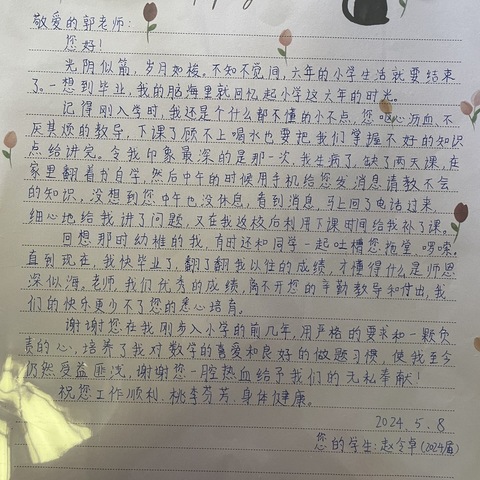 敬爱的郭老师:
您好!
光阴似箭,岁月如梭。不知不觉间,六年的小学生活就要结束
了。一想到毕业,我的脑海里就回忆起小学这六年的时光。
记得刚入学时,我还是个什么都不懂的小不点,您呕心沥血、不
厌其烦的教导,下课了顾不上喝水也要把我们掌握不好的知识
点给讲完。令我印象最深的是那一次,我生病了,缺了两天课,在
家里翻着书自学,然后中午的时候用手机给您发消息请教不会
的知识,没想到您中午也没休息,看到消息,马上回了电话过来,
细心地给我讲了问题,又在我返校后利用下课时间给我补了课。
回想那时幼稚的我,有时还和同学一起吐槽您拖堂、啰嗦。
直到现在,我快毕业了,翻了翻我以往的成绩,才懂得什么是师恩
深似海。老师,我们优秀的成绩,离不开您的辛勤教导和付出,我
们的快乐更少不了您的悉心培育。
谢谢您在我刚步入小学的前几年,用严格的要求和一颗负
责的心,培养了我对数学的喜爱和良好的做题习惯,使我至今
仍然受益匪浅,谢谢您一腔热血给予我们的无私奉献!
祝您工作顺利,桃李芬芳,身体健康。
2024.5.8
您的学生:赵令卓(2024届)